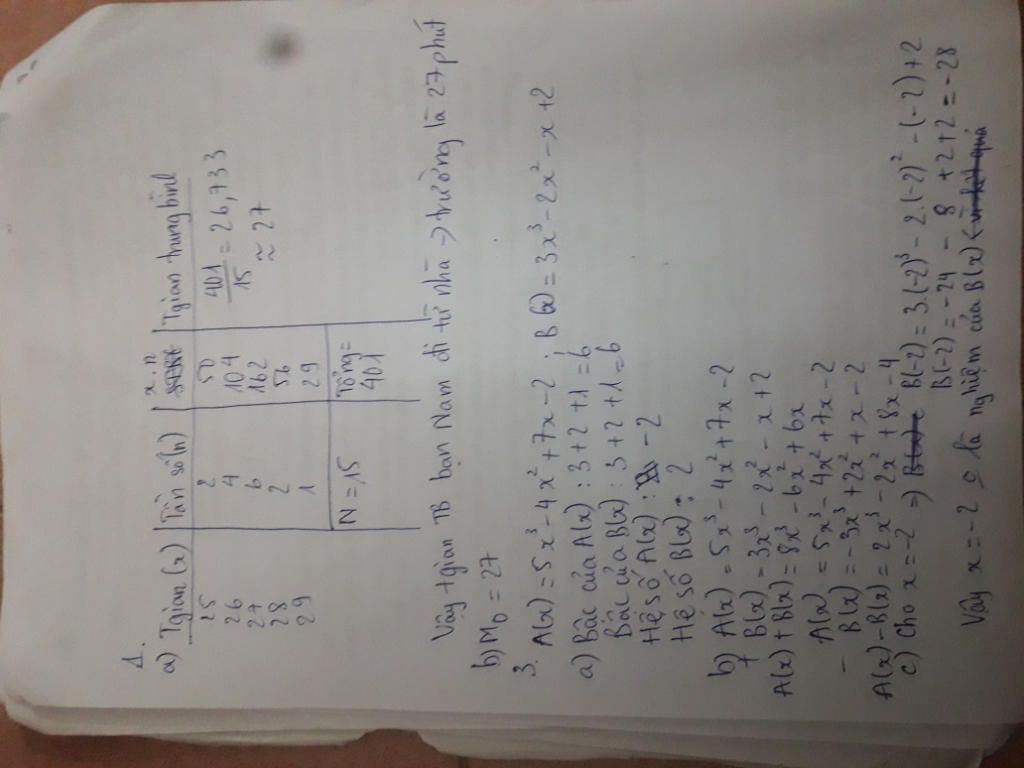 1.
a) Tgian (x) | Tần số (n) | x.n | Tgian trung bình
25 2 50 401/15 = 26,733
26 4 104 ≈ 27
27 6 162
28 2 56
29 1 29
N = 15 Tổng = 401
Vậy tgian TB bạn Nam đi từ nhà -> trường là 27 phút
b) M0 = 27
3. A(x) = 5x³ - 4x² + 7x - 2 . B(x) = 3x³ - 2x² - x + 2
a) Bậc của A(x) : 3 + 2 + 1 = 6
Bậc của B(x) : 3 + 2 + 1 = 6
Hệ số A(x) : - 2
Hệ số B(x) : 2
b) A(x) = 5x³ - 4x² + 7x - 2
+ B(x) = 3x³ - 2x² - x + 2
A(x) + B(x) = 8x³ - 6x² + 6x
A(x) = 5x³ - 4x² + 7x - 2
- B(x) = -3x³ + 2x² + x - 2
A(x) - B(x) = 2x³ - 2x² + 8x - 4
c) Cho x = -2 => B(x) = B(-2) = 3.(-2)³ - 2.(-2)² - (-2) + 2
B(-2) = -24 - 8 + 2 + 2 = -28
Vậy x = -2 là nghiệm của B(x)